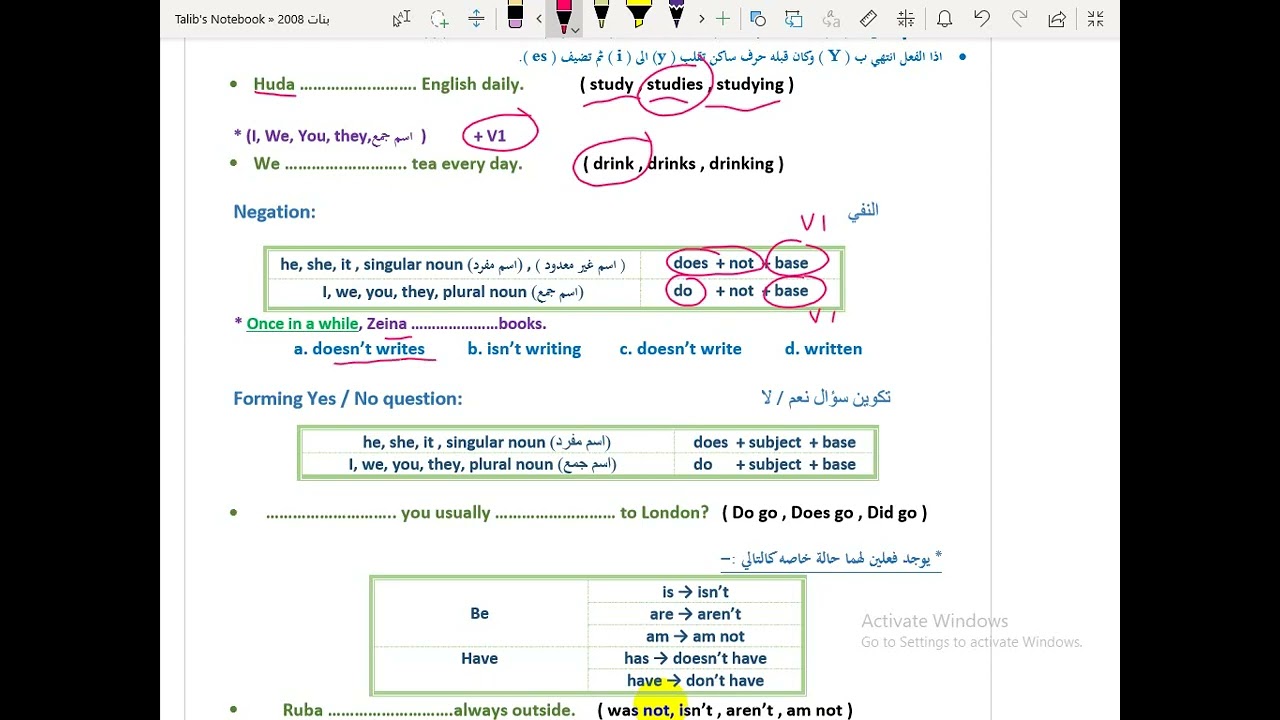 Talib's Notebook » 2008 بنات
اذا الفعل انتهي ب ( Y ) وكان قبله حرف ساكن تقلب (y) الى ( i ) ثم تضيف ( es ).
• Huda ……………………. English daily. ( study , studies , studying )
* (I, We, You, they,اسم جمع ) + V1
• We ……………………….. tea every day. ( drink , drinks , drinking )
Negation: النفي
V1
he, she, it , singular noun (اسم مفرد) , ( اسم غير معدود ) does + not + base
I, we, you, they, plural noun (اسم جمع) do + not + base
V1
* Once in a while, Zeina …………………books.
a. doesn't writes b. isn't writing c. doesn't write d. written
Forming Yes / No question: تكوين سؤال نعم / لا
he, she, it , singular noun (اسم مفرد) does + subject + base
I, we, you, they, plural noun (اسم جمع) do + subject + base
• ………………………….. you usually ……………………… to London? ( Do go , Does go , Did go )
* يوجد فعلين لهما حالة خاصه كالتالي :–
Be
is → isn't
are → aren't
am → am not
Have
has → doesn't have
have → don't have
Activate Windows
Go to Settings to activate Windows.
• Ruba ………………………..always outside. ( was not, isn't , aren't , am not )